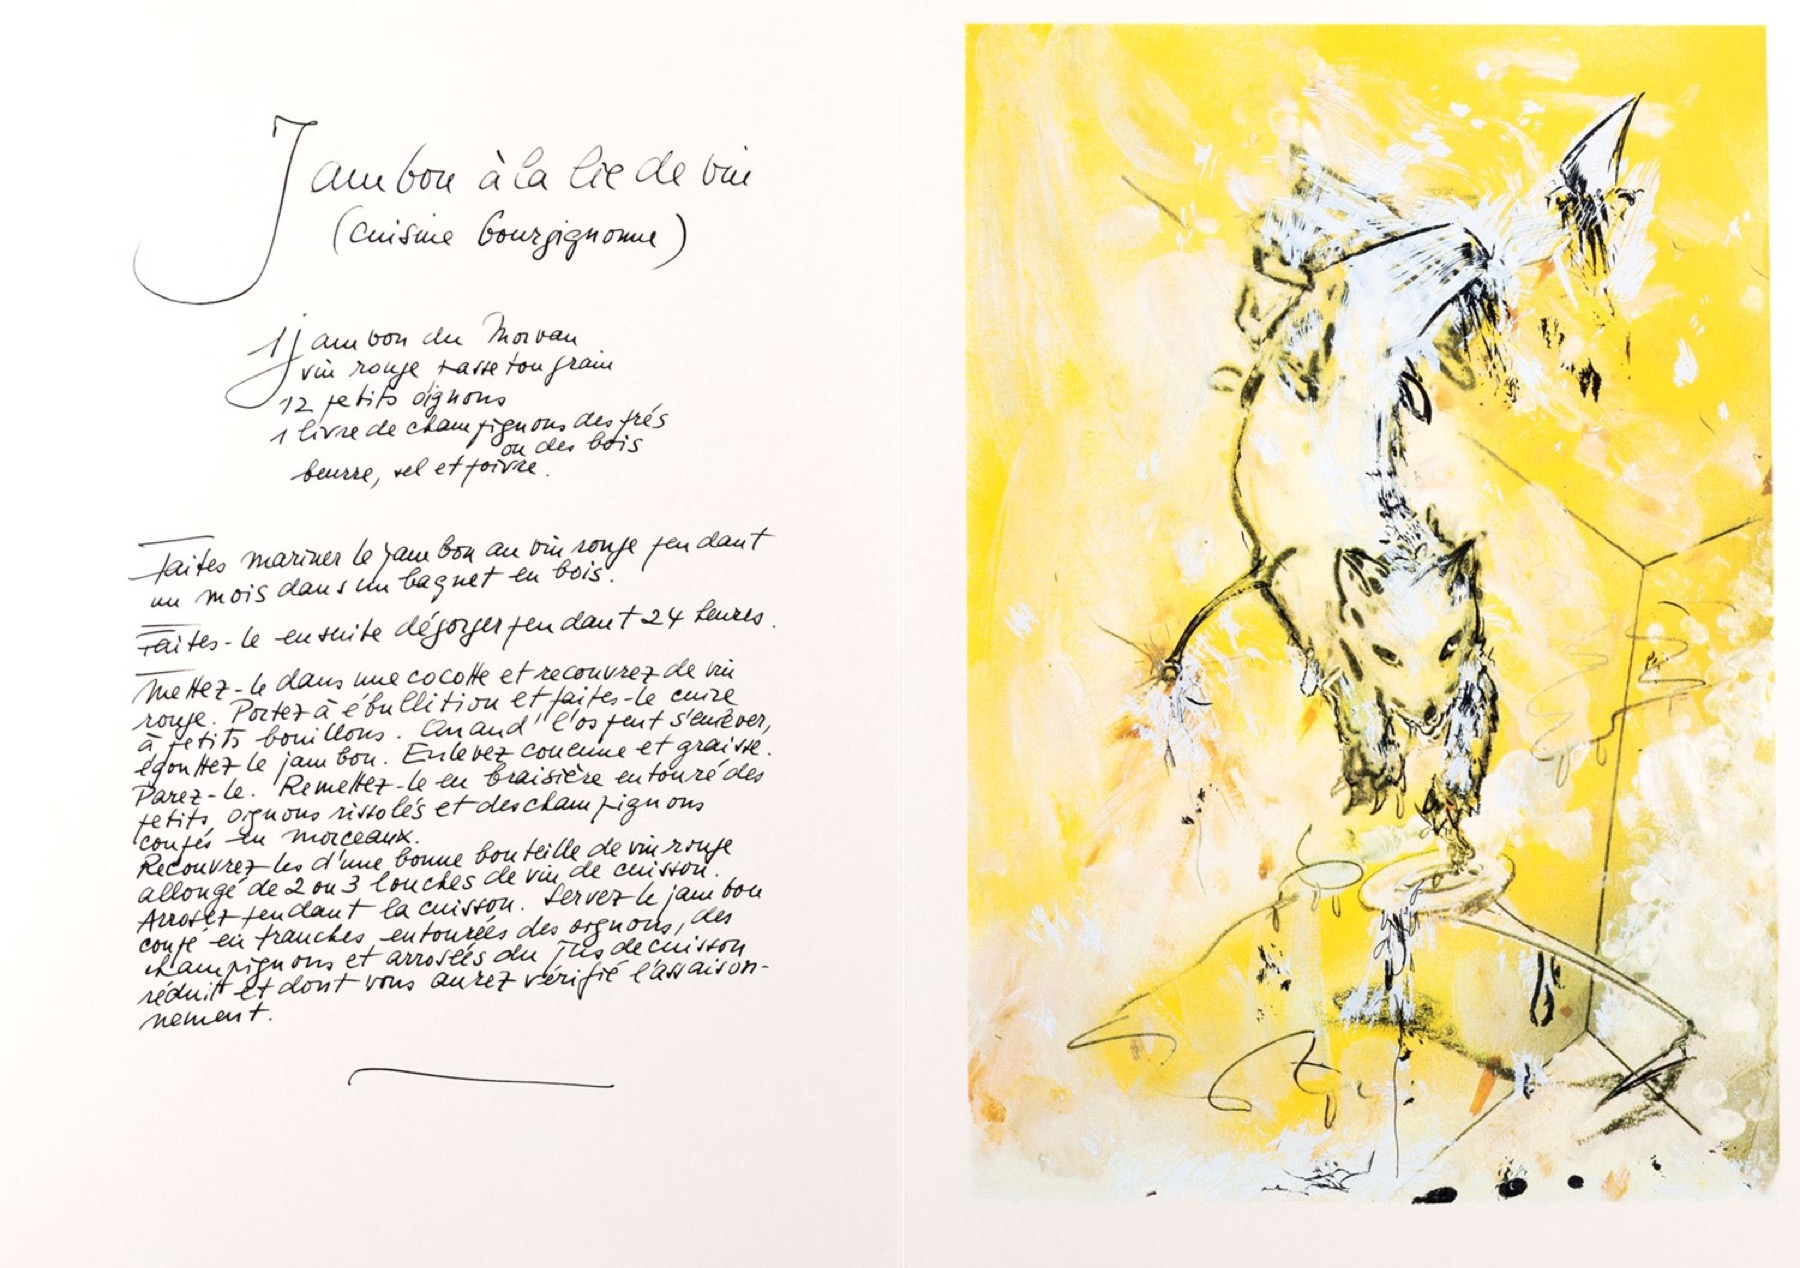 Jambon à la lie de vin
(cuisine bourgignonne)
1 jambon du Morvan
vin rouge passetougrain
12 petits oignons
1 livre de champignons des prés
ou des bois
beurre, sel et poivre.
Faites mariner le jambon au vin rouge pendant
un mois dans un baquet en bois.
Faites-le ensuite dégorger pendant 24 heures.
Mettez-le dans une cocotte et recouvrez de vin
rouge. Portez à ébullition et faites-le cuire
à petits bouillons. Quand l'os peut s'enlever,
égouttez le jambon. Enlevez couenne et graisse.
Parez-le. Remettez-le en braisière entouré des
petits oignons rissolés et des champignons
coupés en morceaux.
Recouvrez-les d'une bonne bouteille de vin rouge
allongé de 2 ou 3 louches de vin de cuisson.
Arrosez pendant la cuisson. Servez le jambon
coupé en tranches entourées des oignons, des
champignons et arrosés du jus de cuisson
réduit et dont vous aurez vérifié l'assaison-
nement.